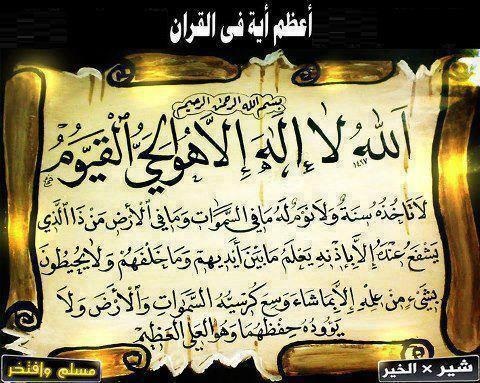 أعظم أية فى القران
بسم الله الرحمن الرحيم
اَللّٰهُ لَا إِلٰهَ إِلَّا هُوَ الْحَيُّ الْقَيُّومُ
لَا تَأْخُذُهُ سِنَةٌ وَلَا نَوْمٌ لَهُ مَا فِي السَّمٰوَاتِ وَمَا فِي الْأَرْضِ مَنْ ذَا الَّذِي
يَشْفَعُ عِنْدَهُ إِلَّا بِإِذْنِهِ يَعْلَمُ مَا بَيْنَ أَيْدِيهِمْ وَمَا خَلْفَهُمْ وَلَا يُحِيطُونَ
بِشَيْءٍ مِنْ عِلْمِهِ إِلَّا بِمَا شَاءَ وَسِعَ كُرْسِيُّهُ السَّمٰوَاتِ وَالْأَرْضَ وَلَا
يَؤُودُهُ حِفْظُهُمَا وَهُوَ الْعَلِيُّ الْعَظِيمُ
شير × الخير
مسلم وافتخر